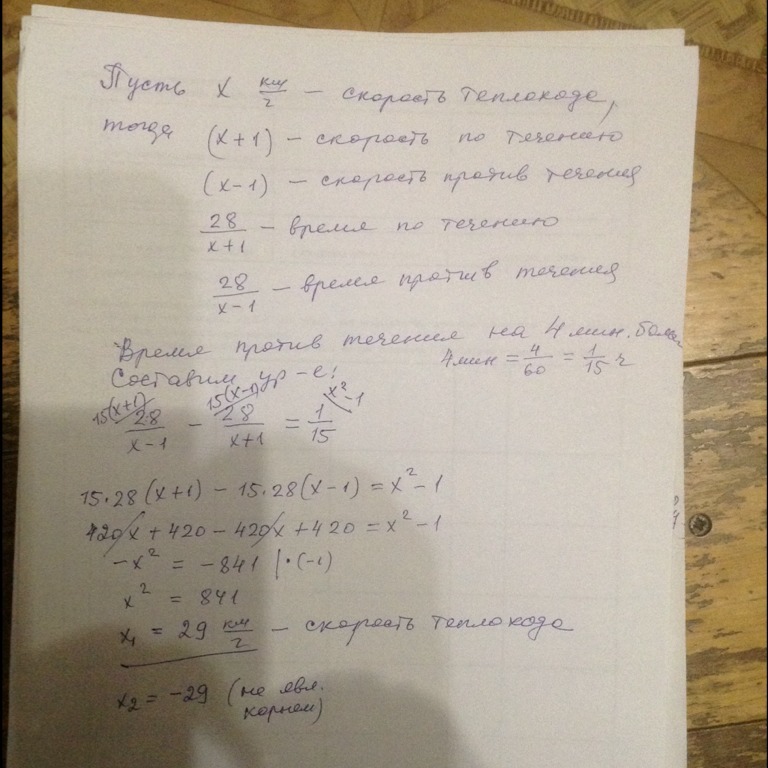 Пусть x км/ч – скорость теплохода,
тогда (x+1) – скорость по течению
(x-1) – скорость против течения
28/(x+1) – время по течению
28/(x-1) – время против течения
Время против течения на 4 мин. больше
4 мин = 4/60 = 1/15 ч
Составим ур-е:
15(x+1) 15(x-1) x²-1
28/(x-1) – 28/(x+1) = 1/15
15·28(x+1) – 15·28(x-1) = x²-1
420x + 420 – 420x + 420 = x²-1
-x² = -841 |·(-1)
x² = 841
x₁ = 29 км/ч – скорость теплохода
x₂ = -29 (не явл.
корнем)